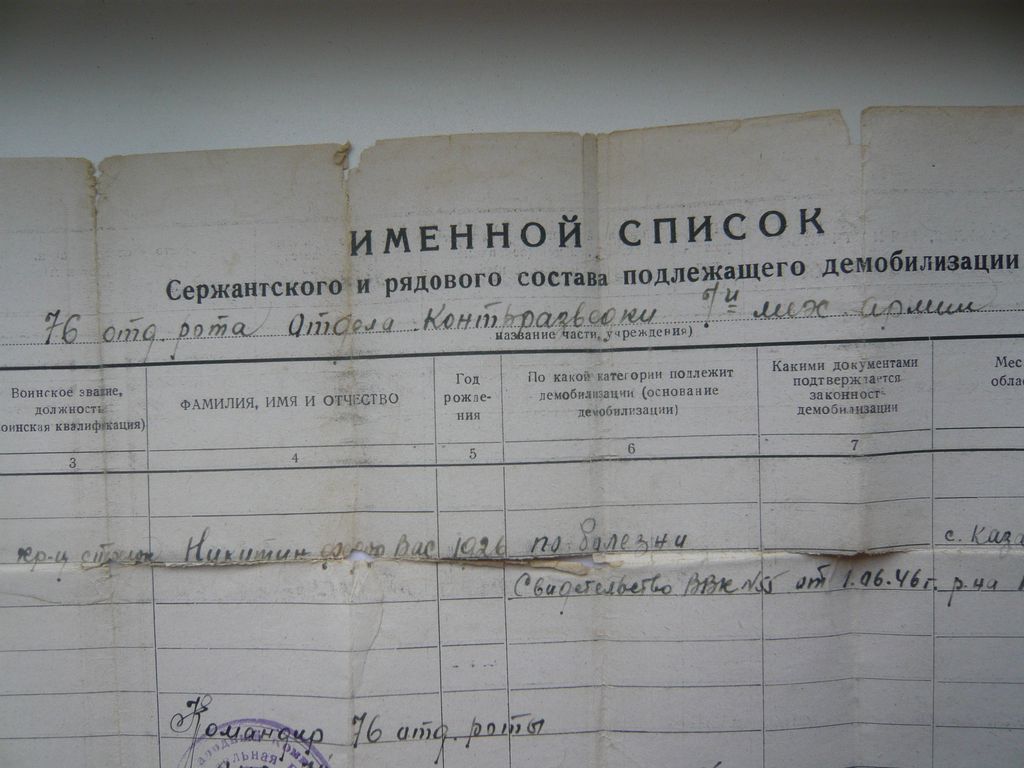 ИМЕННОЙ СПИСОК
Сержантского и рядового состава подлежащего демобилизации
76 отд. рота Отдела Контрразведки 5й мех армии
название части, учреждения)
Воинское звание,
должность
оинская квалификация)
ФАМИЛИЯ, ИМЯ И ОТЧЕСТВО
Год
рожде-
ния
По какой категории подлежит
демобилизации (основание
демобилизации)
Какими документами
подтверждается
законность
демобилизации
Мес
облас
3 4 5 6 7
кр-ц стрелок Никитин Вас 1926 по болезни с. Каза
Свидетельство ВВК №55 от 1.06.46г. р-на
Командир 76 отд. роты